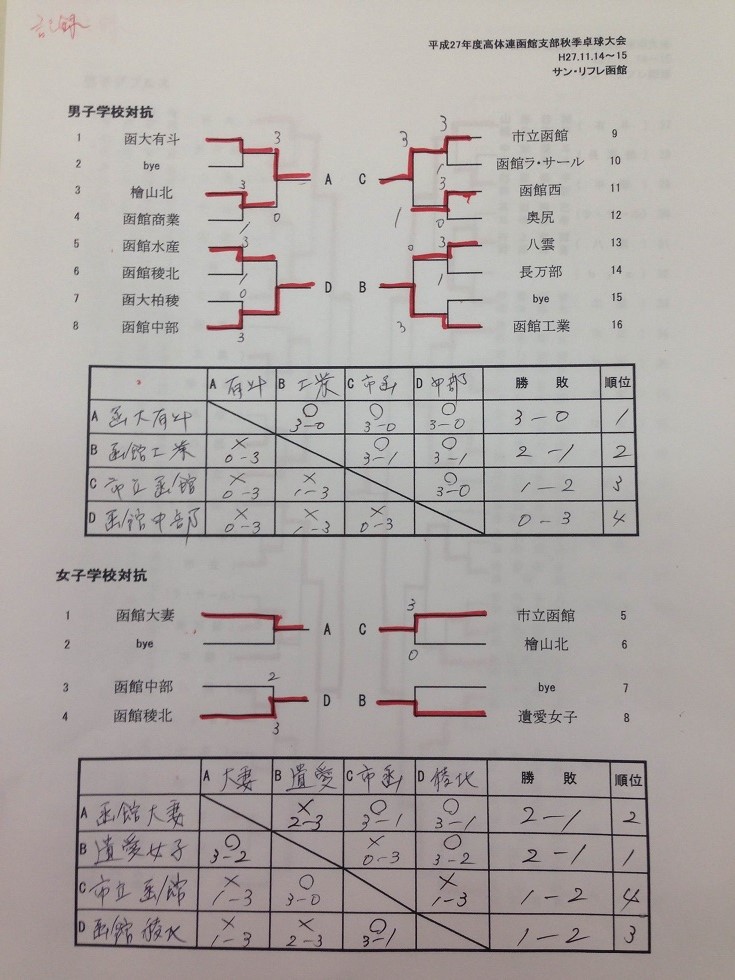 記録
平成27年度高体連函館支部秋季卓球大会
H27.11.14～15
サン・リフレ函館
男子学校対抗
1 函大有斗 3 3 市立函館 9
2 bye A C 函館ラ・サール 10
1
3 檜山北 3 3 函館西 11
4 函館商業 1 0 1 0 奥尻 12
5 函館水産 3 0 3 八雲 13
6 函館稜北 1 D B 1 長万部 14
7 函大柏稜 0 bye 15
8 函館中部 3 3 函館工業 16
A 有斗 B 工業 C 市函 D 中部 勝 敗 順位
A 函大有斗 ○ 3-0 ○ 3-0 ○ 3-0 3-0 1
B 函館工業 × 0-3 ○ 3-1 ○ 3-1 2-1 2
C 市立函館 × 0-3 × 1-3 ○ 3-0 1-2 3
D 函館中部 × 0-3 × 1-3 × 0-3 0-3 4
女子学校対抗
1 函館大妻 A C 3 市立函館 5
2 bye 0 檜山北 6
3 函館中部 2 D B bye 7
4 函館稜北 3 遺愛女子 8
A 大妻 B 遺愛 C 市函 D 稜北 勝 敗 順位
A 函館大妻 × 2-3 ○ 3-1 ○ 3-1 2-1 2
B 遺愛女子 ○ 3-2 × 0-3 ○ 3-2 2-1 1
C 市立函館 × 1-3 ○ 3-0 × 1-3 1-2 4
D 函館稜北 × 1-3 × 2-3 ○ 3-1 1-2 3